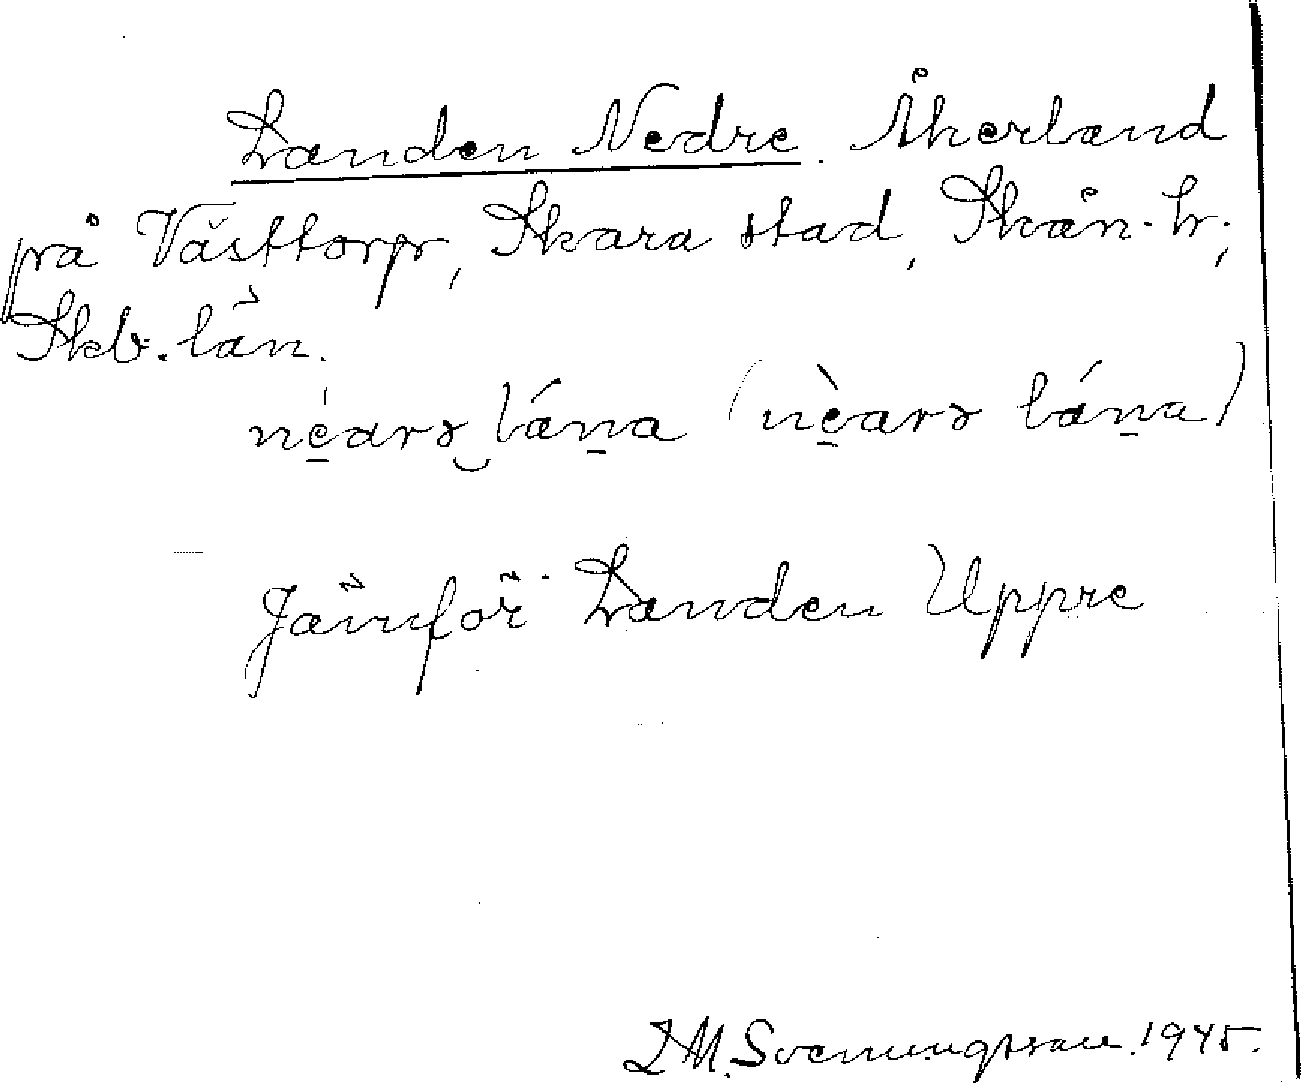 Landen Nedre. Åkerland
på Västtorp, Skara stad, Skån. hr;
Skb. län.
nè̠arə‿lána̠ (nè̠arə lána̠)
Jämför Landen Uppre
I M. Svenungsson. 1945.